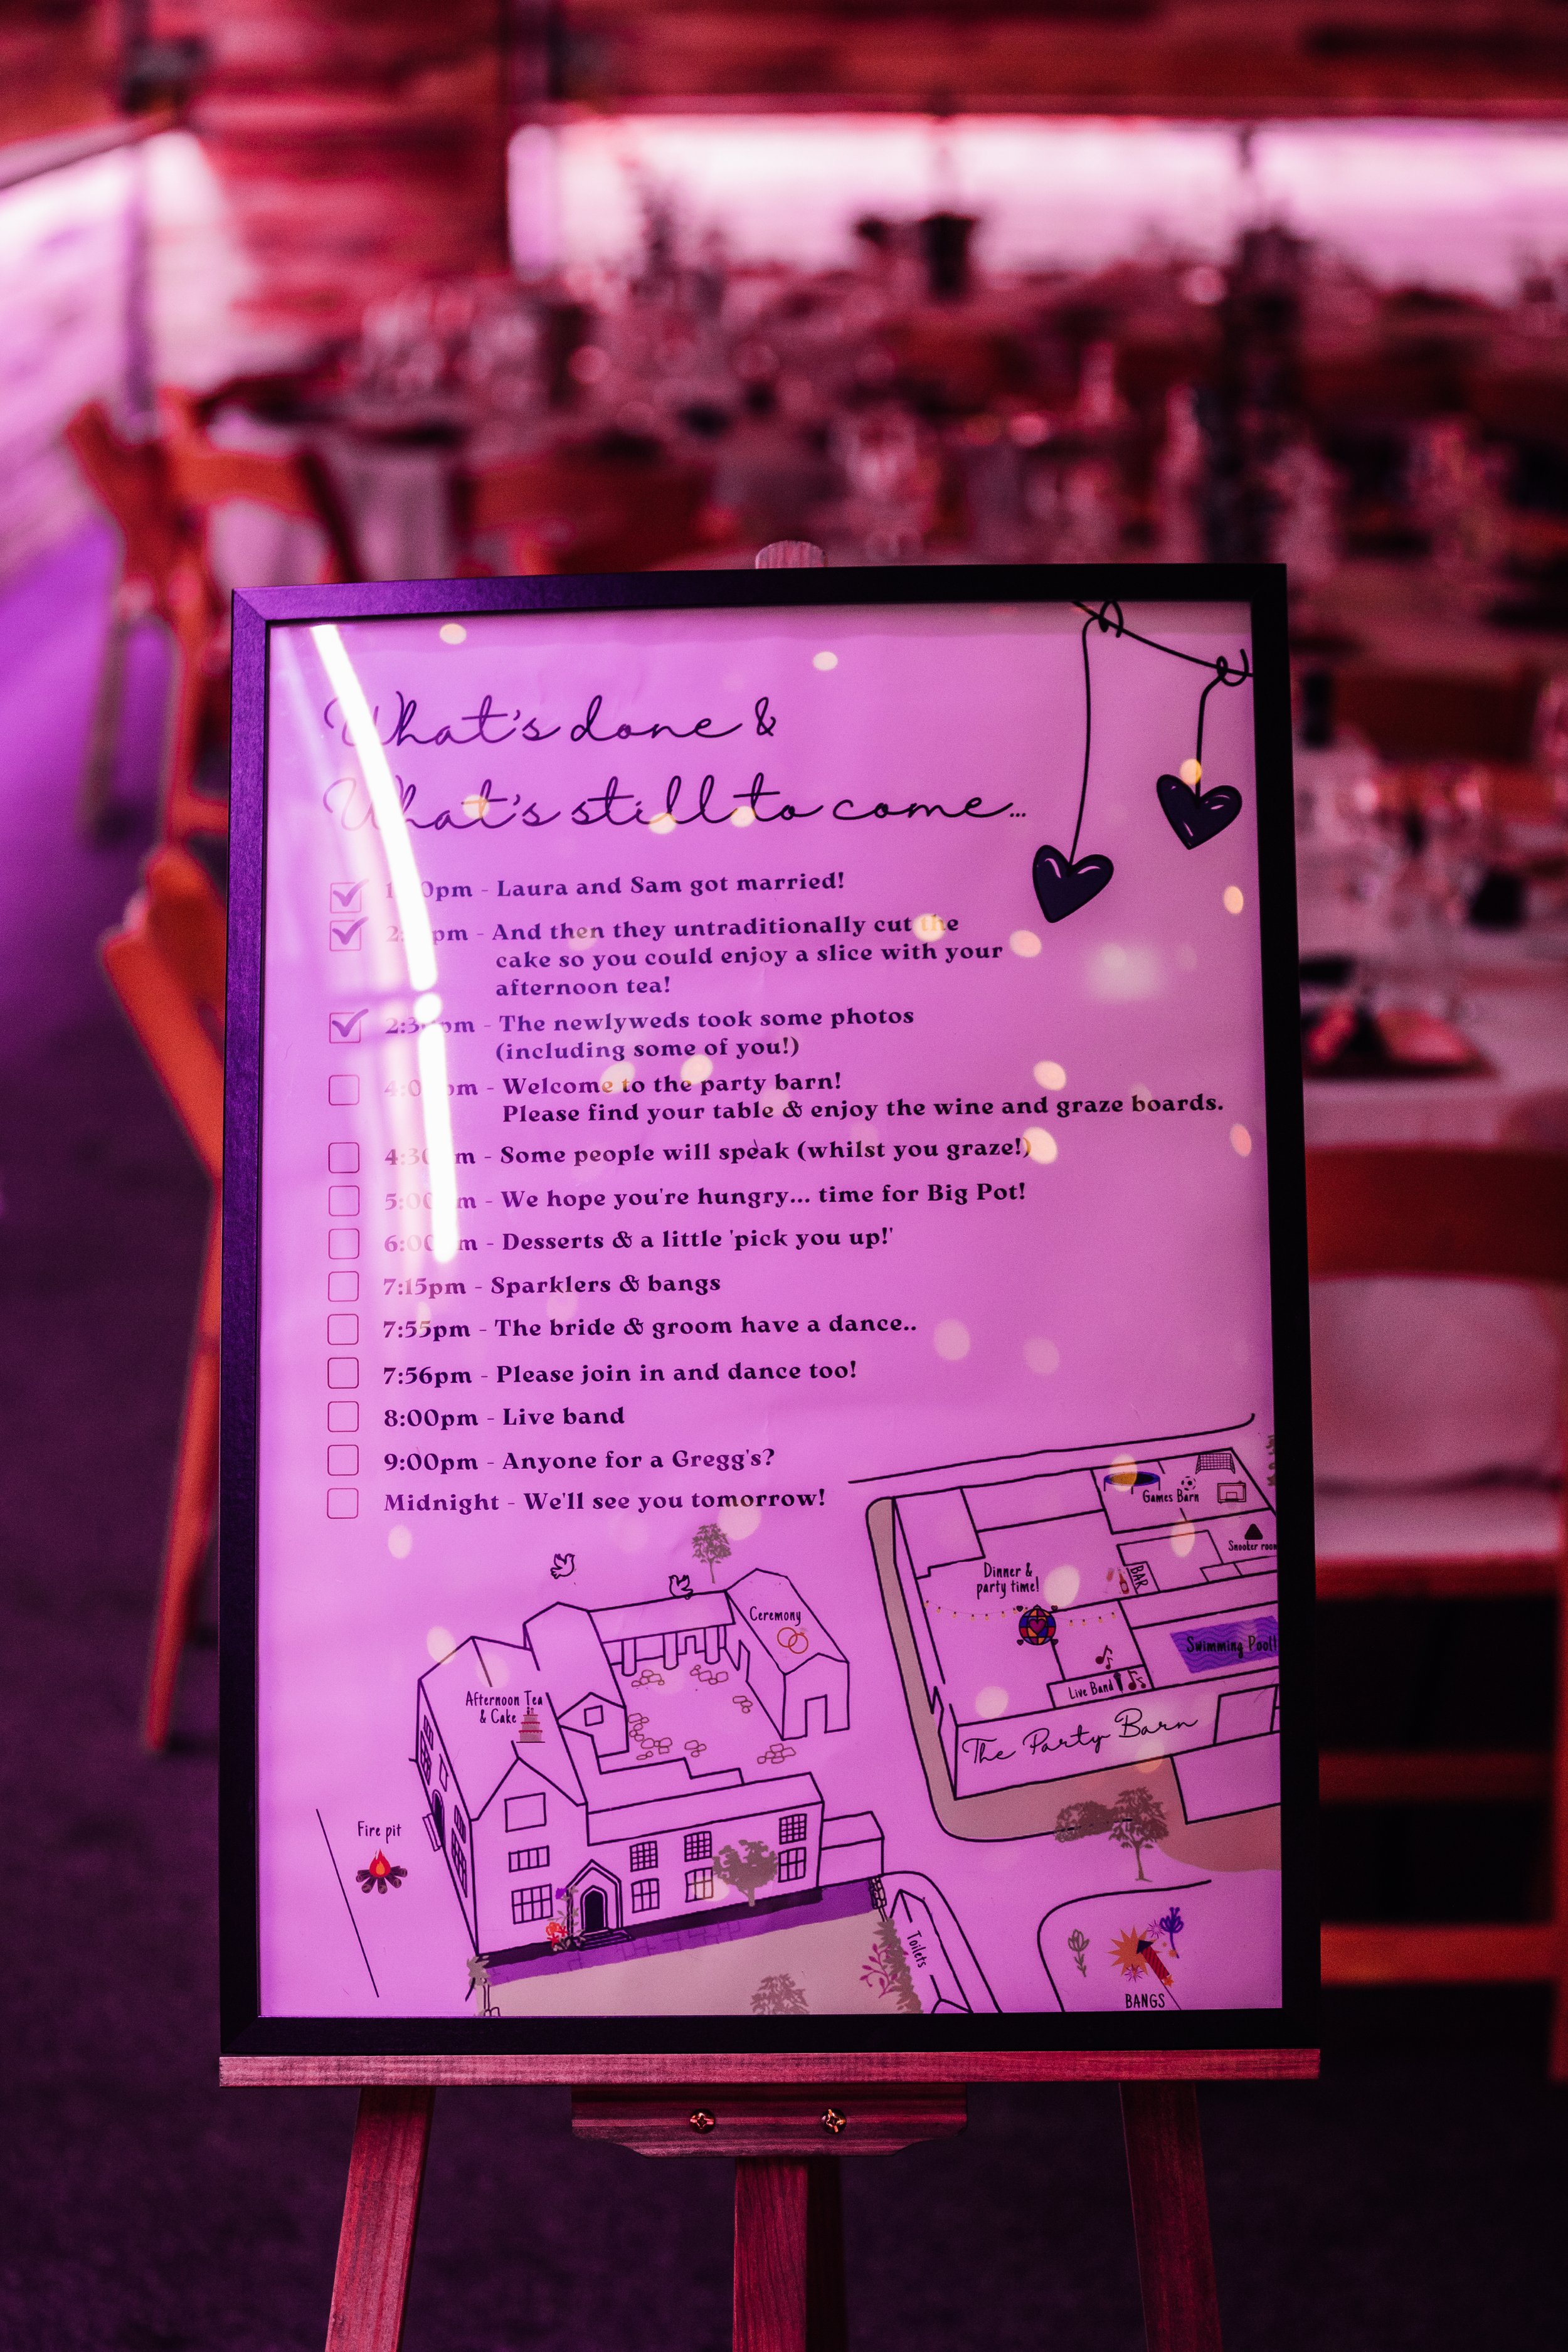 What's done &
What's still to come...
pm - Laura and Sam got married!
pm - And then they untraditionally cut the
cake so you could enjoy a slice with your
afternoon tea!
2:30pm - The newlyweds took some photos
(including some of you!)
4:00pm - Welcome to the party barn!
Please find your table & enjoy the wine and graze boards.
4:30pm - Some people will speak (whilst you graze!)
5:00pm - We hope you're hungry... time for Big Pot!
6:00pm - Desserts & a little 'pick you up!'
7:15pm - Sparklers & bangs
7:55pm - The bride & groom have a dance..
7:56pm - Please join in and dance too!
8:00pm - Live band
9:00pm - Anyone for a Gregg's?
Midnight - We'll see you tomorrow!
Games Barn
Snooker room
Dinner &
party time!
BAR
Ceremony
Swimming Pool!
Afternoon Tea
& Cake
Live Band
The Party Barn
Fire pit
Toilets
BANGS